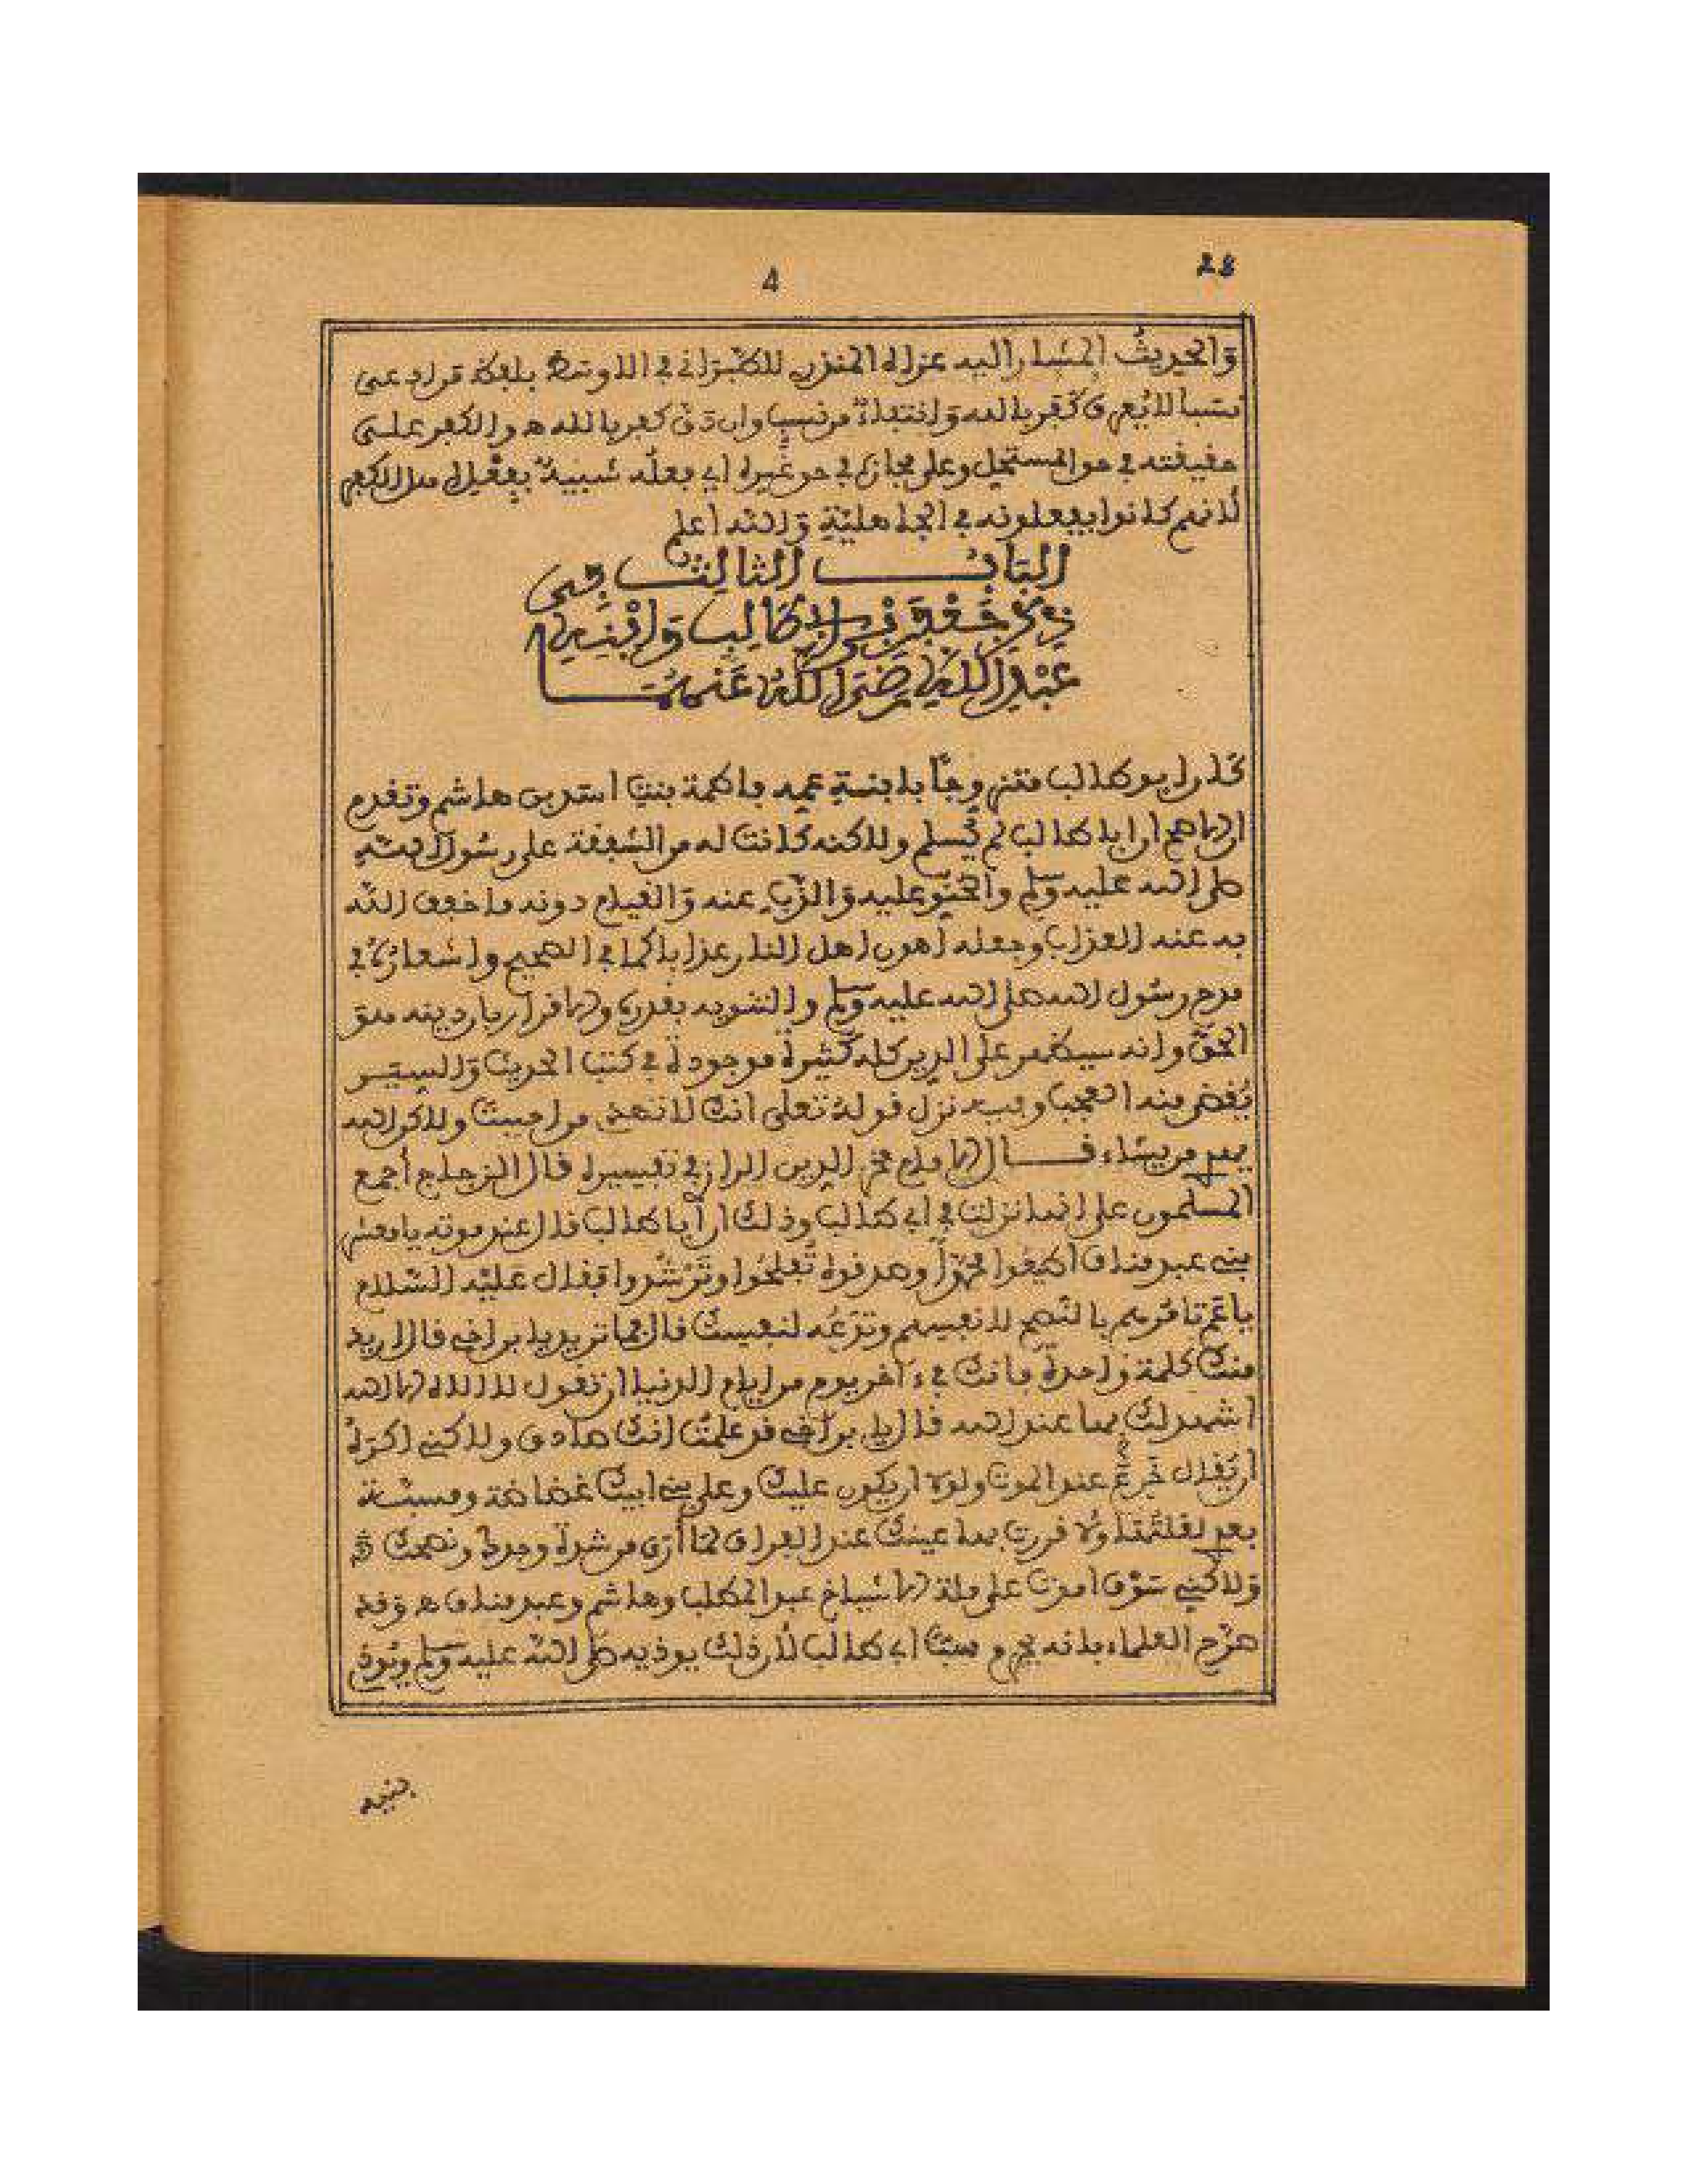 28
4
والحديث المشار اليه عزاه المنذري للطبراني في الاوسط بلفظ من ادعى
نسبا لا يعرف كفر بالله وانتفاء من نسب وان دق كفر بالله ه والكفر على
حقيقته في حق المستحل وعلى مجازه في حق غيره اي بعله شبيه بفعل اهل الكفر
لانهم كانوا يفعلونه في الجاهلية والله اعلم
الباب الثالث في
ذكر جعفر بن ابي طالب وابنه
عبد الله رضي الله عنهما
كان ابو طالب متزوجا بابنة عمه فاطمة بنت اسد بن هاشم وتقدم
ان ابا طالب لم يسلم ولاكنه كانت له من الشفقة على رسول الله
صلى الله عليه وسلم والحنو عليه والذب عنه والقيام دونه ما خفف الله
به عنه العذاب وجعله اهون اهل النار عذابا كما في الصحيح واشعاره في
مدح رسول الله صلى الله عليه وسلم والتنويه بقدره والاقرار بان دينه هو
الحق وانه سيظهر على الدين كله كثيرة موجودة في كتب الحديث والسير
يقضى منه العجب وفيه نزل قوله تعلى انك لا تهدي من احببت ولاكن الله
يهدي من يشاء قال الامام فخر الدين الرازي في تفسيره قال الزجاج أجمع
المسلمون على انها نزلت في ابي طالب وذلك ان أبا طالب قال عند موته يا معشر
بني عبد مناف أطيعوا محمدا وصدقوه تفلحوا وترشدوا فقال عليه السلام
يا عم تامرهم بالنصح لانفسهم وتدعه لنفسك قال فما تريد يا بن اخي قال اريد
منك كلمة واحدة فانك في ءاخر يوم من ايام الدنيا ان تقول لا اله الا الله
اشهد لك بها عند الله قال يا بن اخي قد علمت انك صادق ولاكني اكره
ان يقال خرع عند الموت ولولا ان يكون عليك وعلى بني ابيك غضاضة ومسبة
بعدي لقلتها ولا قررت بها عينك عند الفراق لما أرى من شدة وجدك ونصحك
ولاكني سوف اموت على ملة الاشياخ عبد المطلب وهاشم وعبد مناف ه وقد
صرح العلماء بانه يحرم سب ابي طالب لأن ذلك يوذيه صلى الله عليه وسلم ويوذي